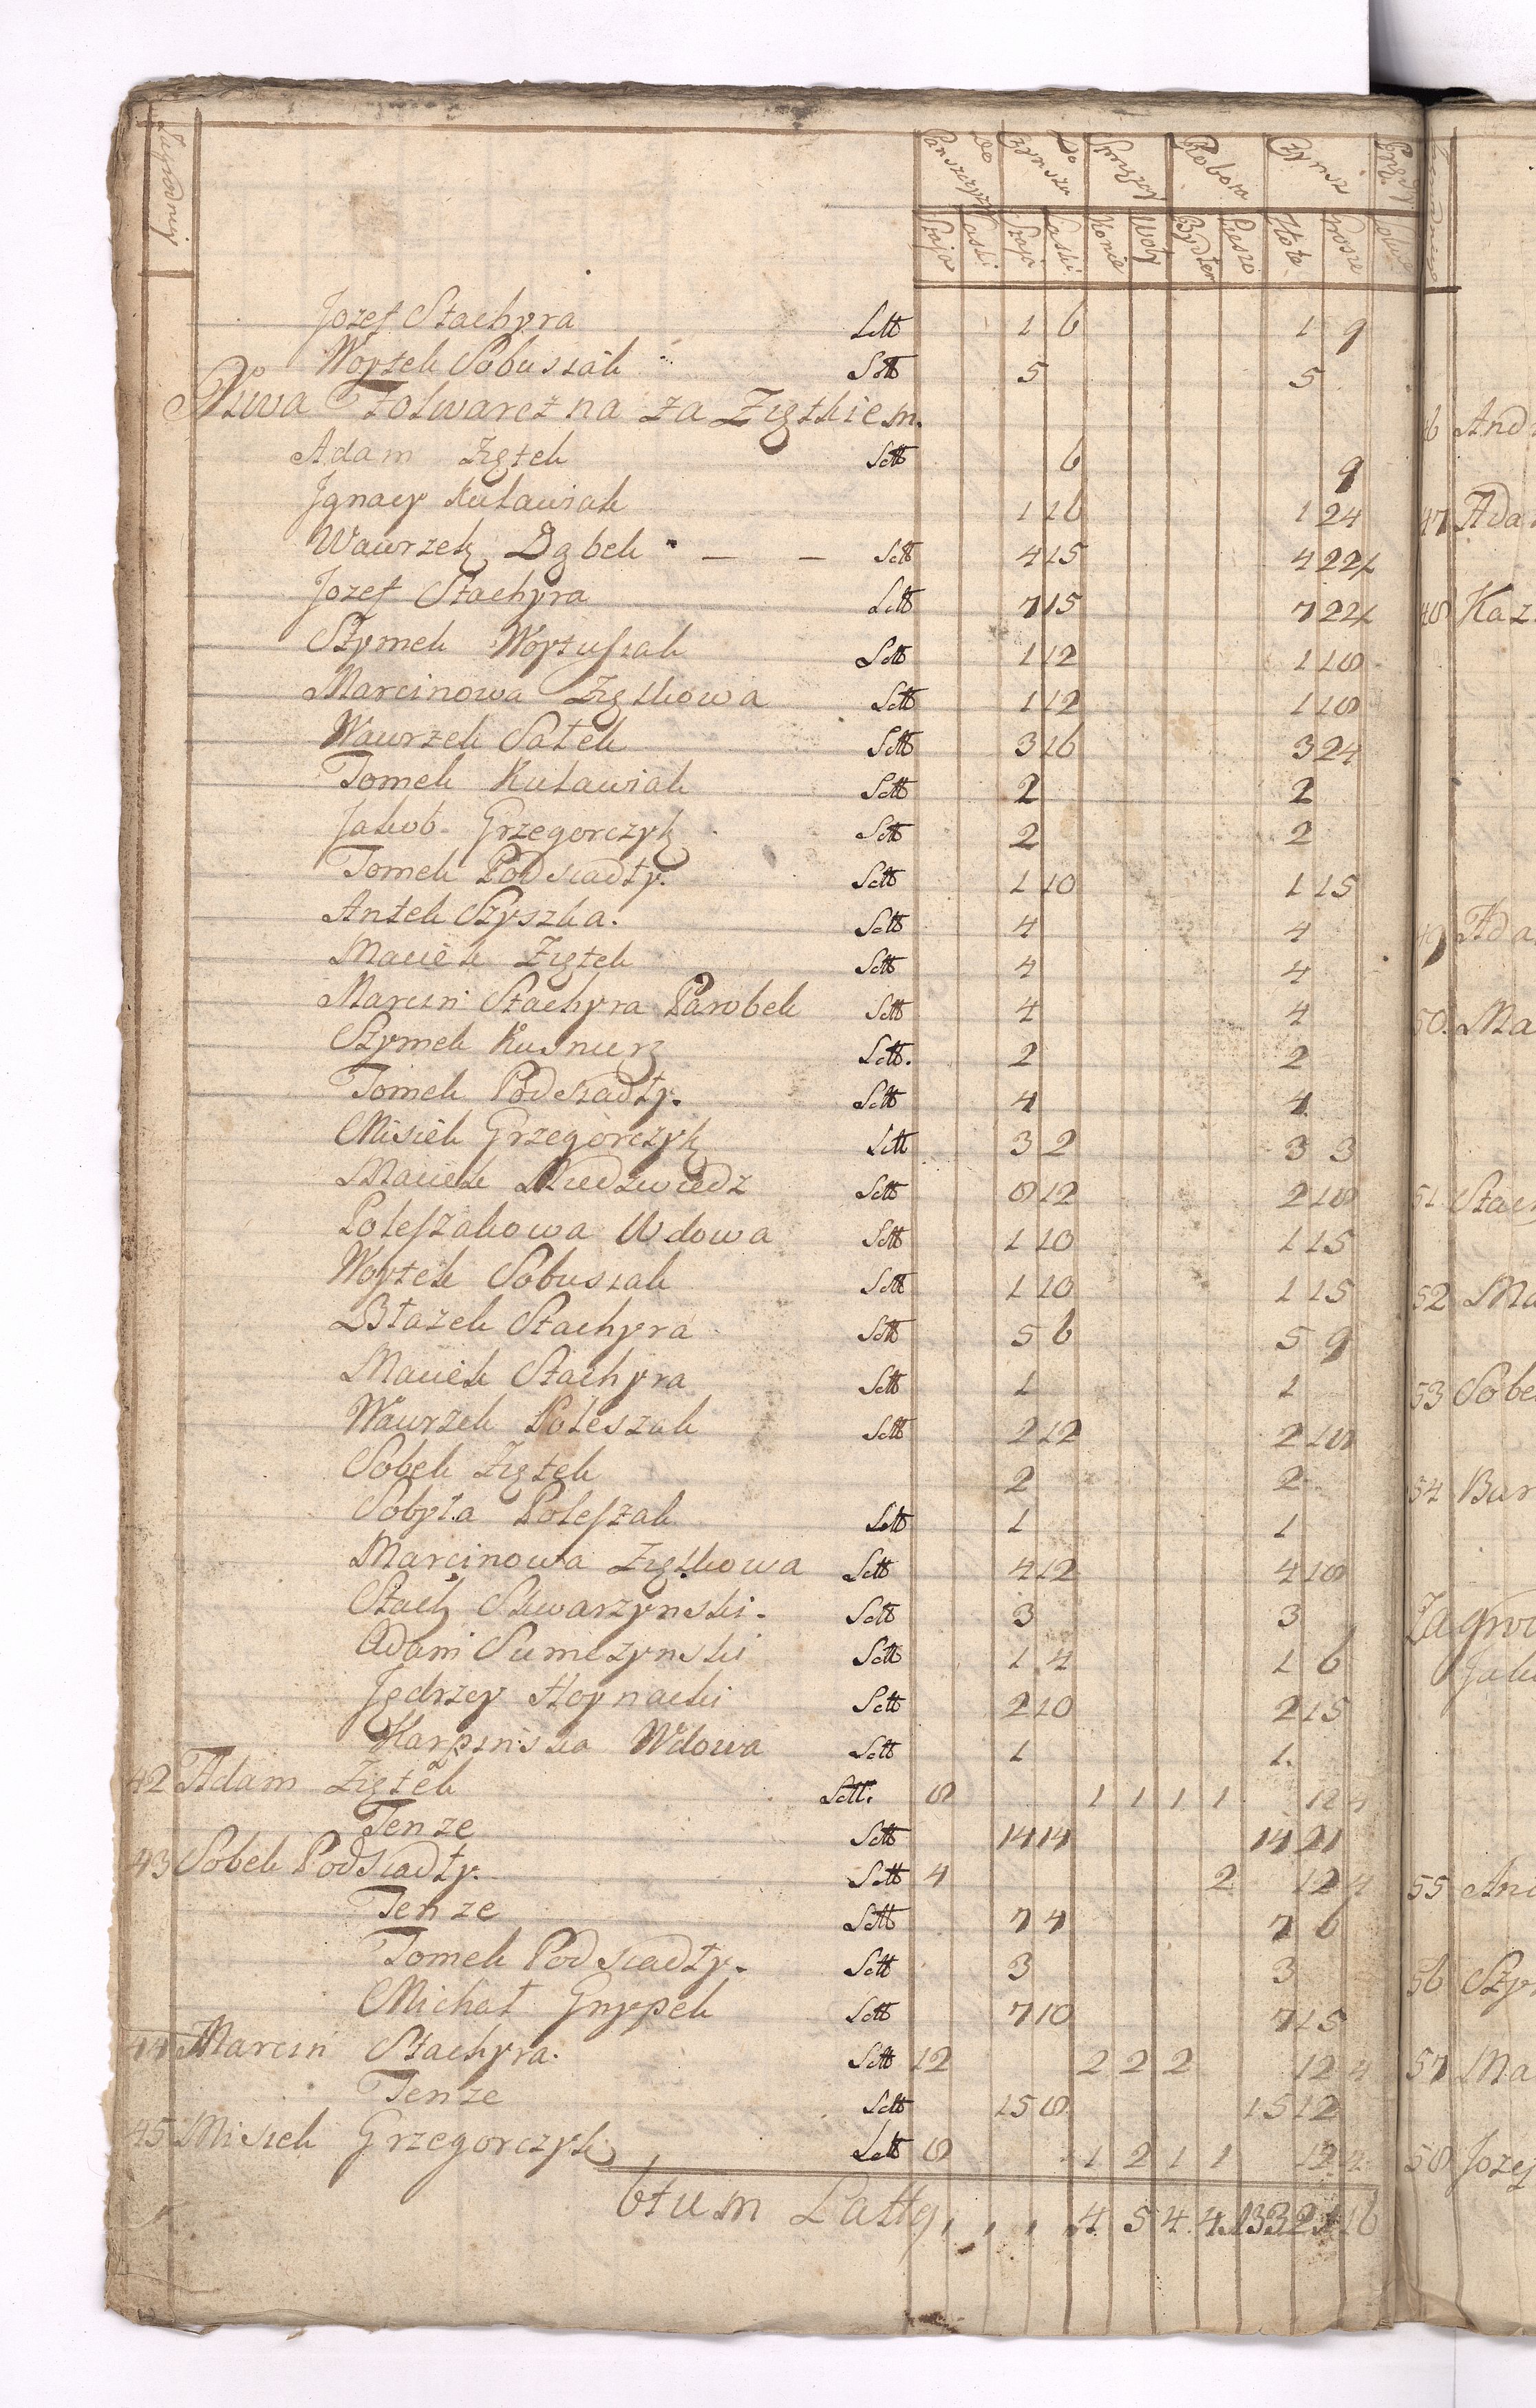 Do Panszczyzn Do Czynszu Sprzęzay Robota Czynsz
Staja Laski Staja Laski Konie Woły Bydłem Pieszo Złote Grosze
Jozef Stachyra Sctt 1 6 1 9
Woytek Sobusiak Sctt 5 5
Niwa Folwarczna za Ziętkiem.
Adam Ziętek Sctt 6 9
Jgnacy Kuławiak 1 16 1 24
Wawrzek Dąbek — — Sctt 4 15 4 22
Jozef Stachyra Sctt 7 15 7 22
Szymek Woytusiak Sctt 1 12 1 18
Marcinowa Ziętkowa Sctt 1 12 1 18
Wawrzek Satek Sctt 3 16 3 24
Tomek Kuławiak Sctt 2 2
Jakob Grzegorczyk Sctt 2 2
Tomek Podsiadły. Sctt 1 10 1 15
Antek Szyszka. Sctt 4 4
Maciek Ziętek Sctt 4 4
Marcin Stachyra Parobek Sctt 4 4
Szymek Kusnierz Sctt. 2 2
Tomek Podsiadły. Sctt 4 4
Misiek Grzegorczyk Sctt 3 2 3 3
Maciek Niedzwiedz Sctt 8 12 2 18
Poleszakowa Wdowa Sctt 1 10 1 15
Woytek Sobusiak Sctt 1 10 1 15
Błazek Stachyra Sctt 5 6 5 9
Maciek Stachyra Sctt 1 1
Wawrzek Poleszak Sctt 2 12 2 18
Sobek Ziętek 2 2
Sobyła Poleszak Sctt 1 1
Marcinowa Ziętkowa Sctt 4 12 4 18
Stach Skwarzynski. Sctt 3 3
Adam Sumczynski Sctt 1 4 1 6
Jędrzey Hoynacki Sctt 2 10 2 15
Karpinska Wdowa Sctt 1 1.
42 Adam Ziętek Sctt. 8 1 1 1 1 12 4
Tenze Sctt 14 14 14 21
43 Sobek Podsiadły. Sctt 4 2 12 4
Tenze Sctt 7 4 7 6
Tomek Podsiadły. Sctt 3 3
Michał Gnypek Sctt 7 10 7 15
44 Marcin Stachyra. Sctt 12 2 2 2 12 4
Tenze Sctt 15 8 15 12
45 Misiek Grzegorczyk Sctt 8 1 2 1 1 12 4
4 5 4 4 133 21 16
46 And
47 Ada
48 Kaz
49 Ada
50. Ma
51 Stac
52 Ma
53 Sobe
54 Bar
Zagro
Jak
55 And
56 Szy
57 Ma
58 Jozef